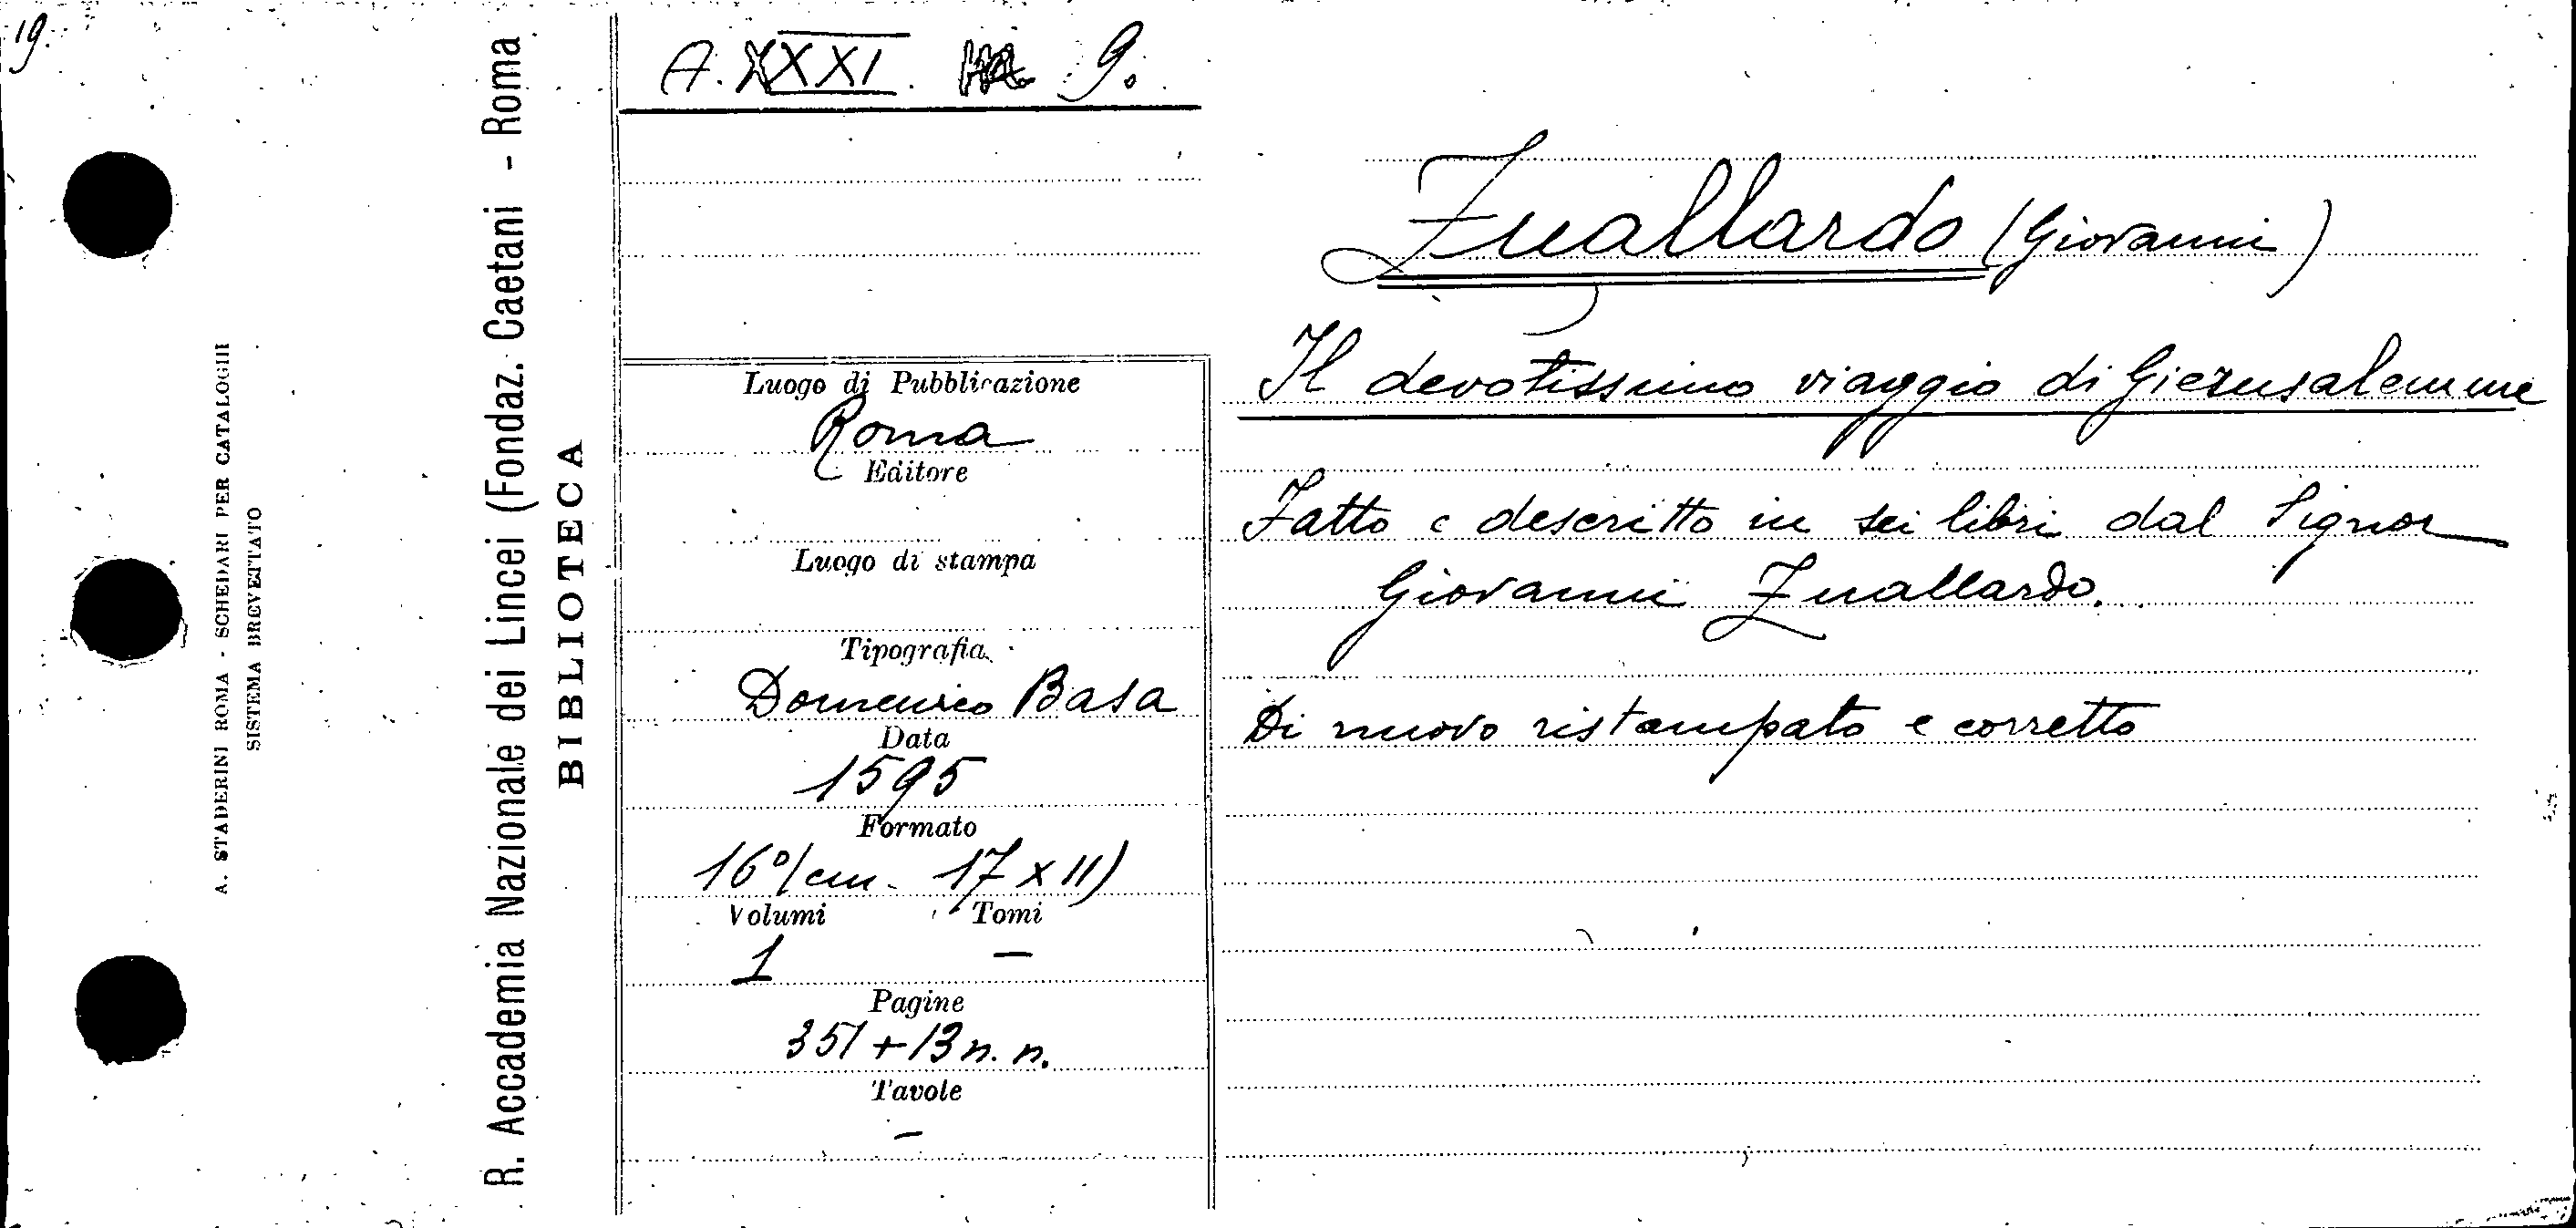 19.
A. XXXI. 9.
Zuallardo (Giovanni)
Il devotissimo viaggio di Gierusalemme
Fatto e descritto in sei libri dal Signor
Giovanni Zuallardo.
Di nuovo ristampato e corretto
Luogo di Pubblicazione
Roma
Editore
Luogo di stampa
Tipografia
Domenico Basa
Data
1595
Formato
16° (cm. 17 x 11)
Volumi Tomi
1 —
Pagine
351 + 13 n. n.
Tavole
—
R. Accademia Nazionale dei Lincei (Fondaz. Caetani - Roma
BIBLIOTECA
A. STADERINI ROMA - SCHEDARI PER CATALOGHI
SISTEMA BREVETTATO